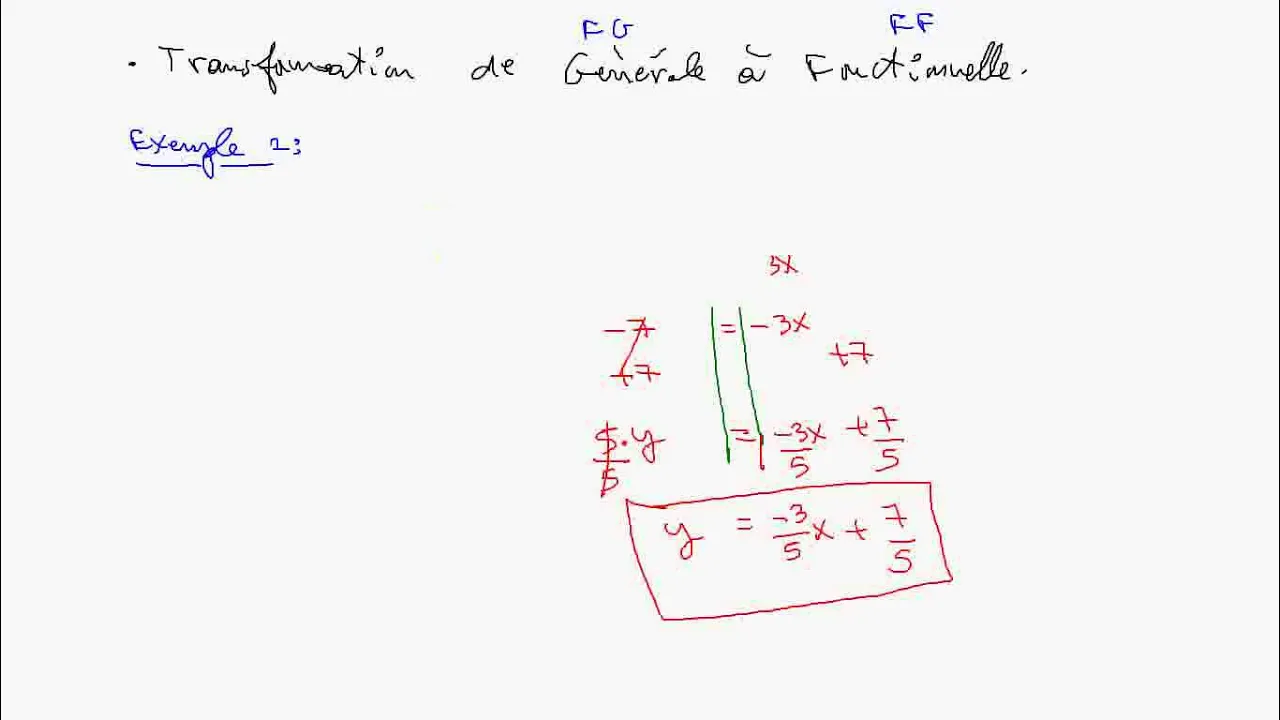 FG FF
. Transformation de Générale à Fonctionnelle.
Exemple 2:
3x
-7 = -3x
+7 +7
5.y/5 = -3x/5 + 7/5
y = -3/5 x + 7/5